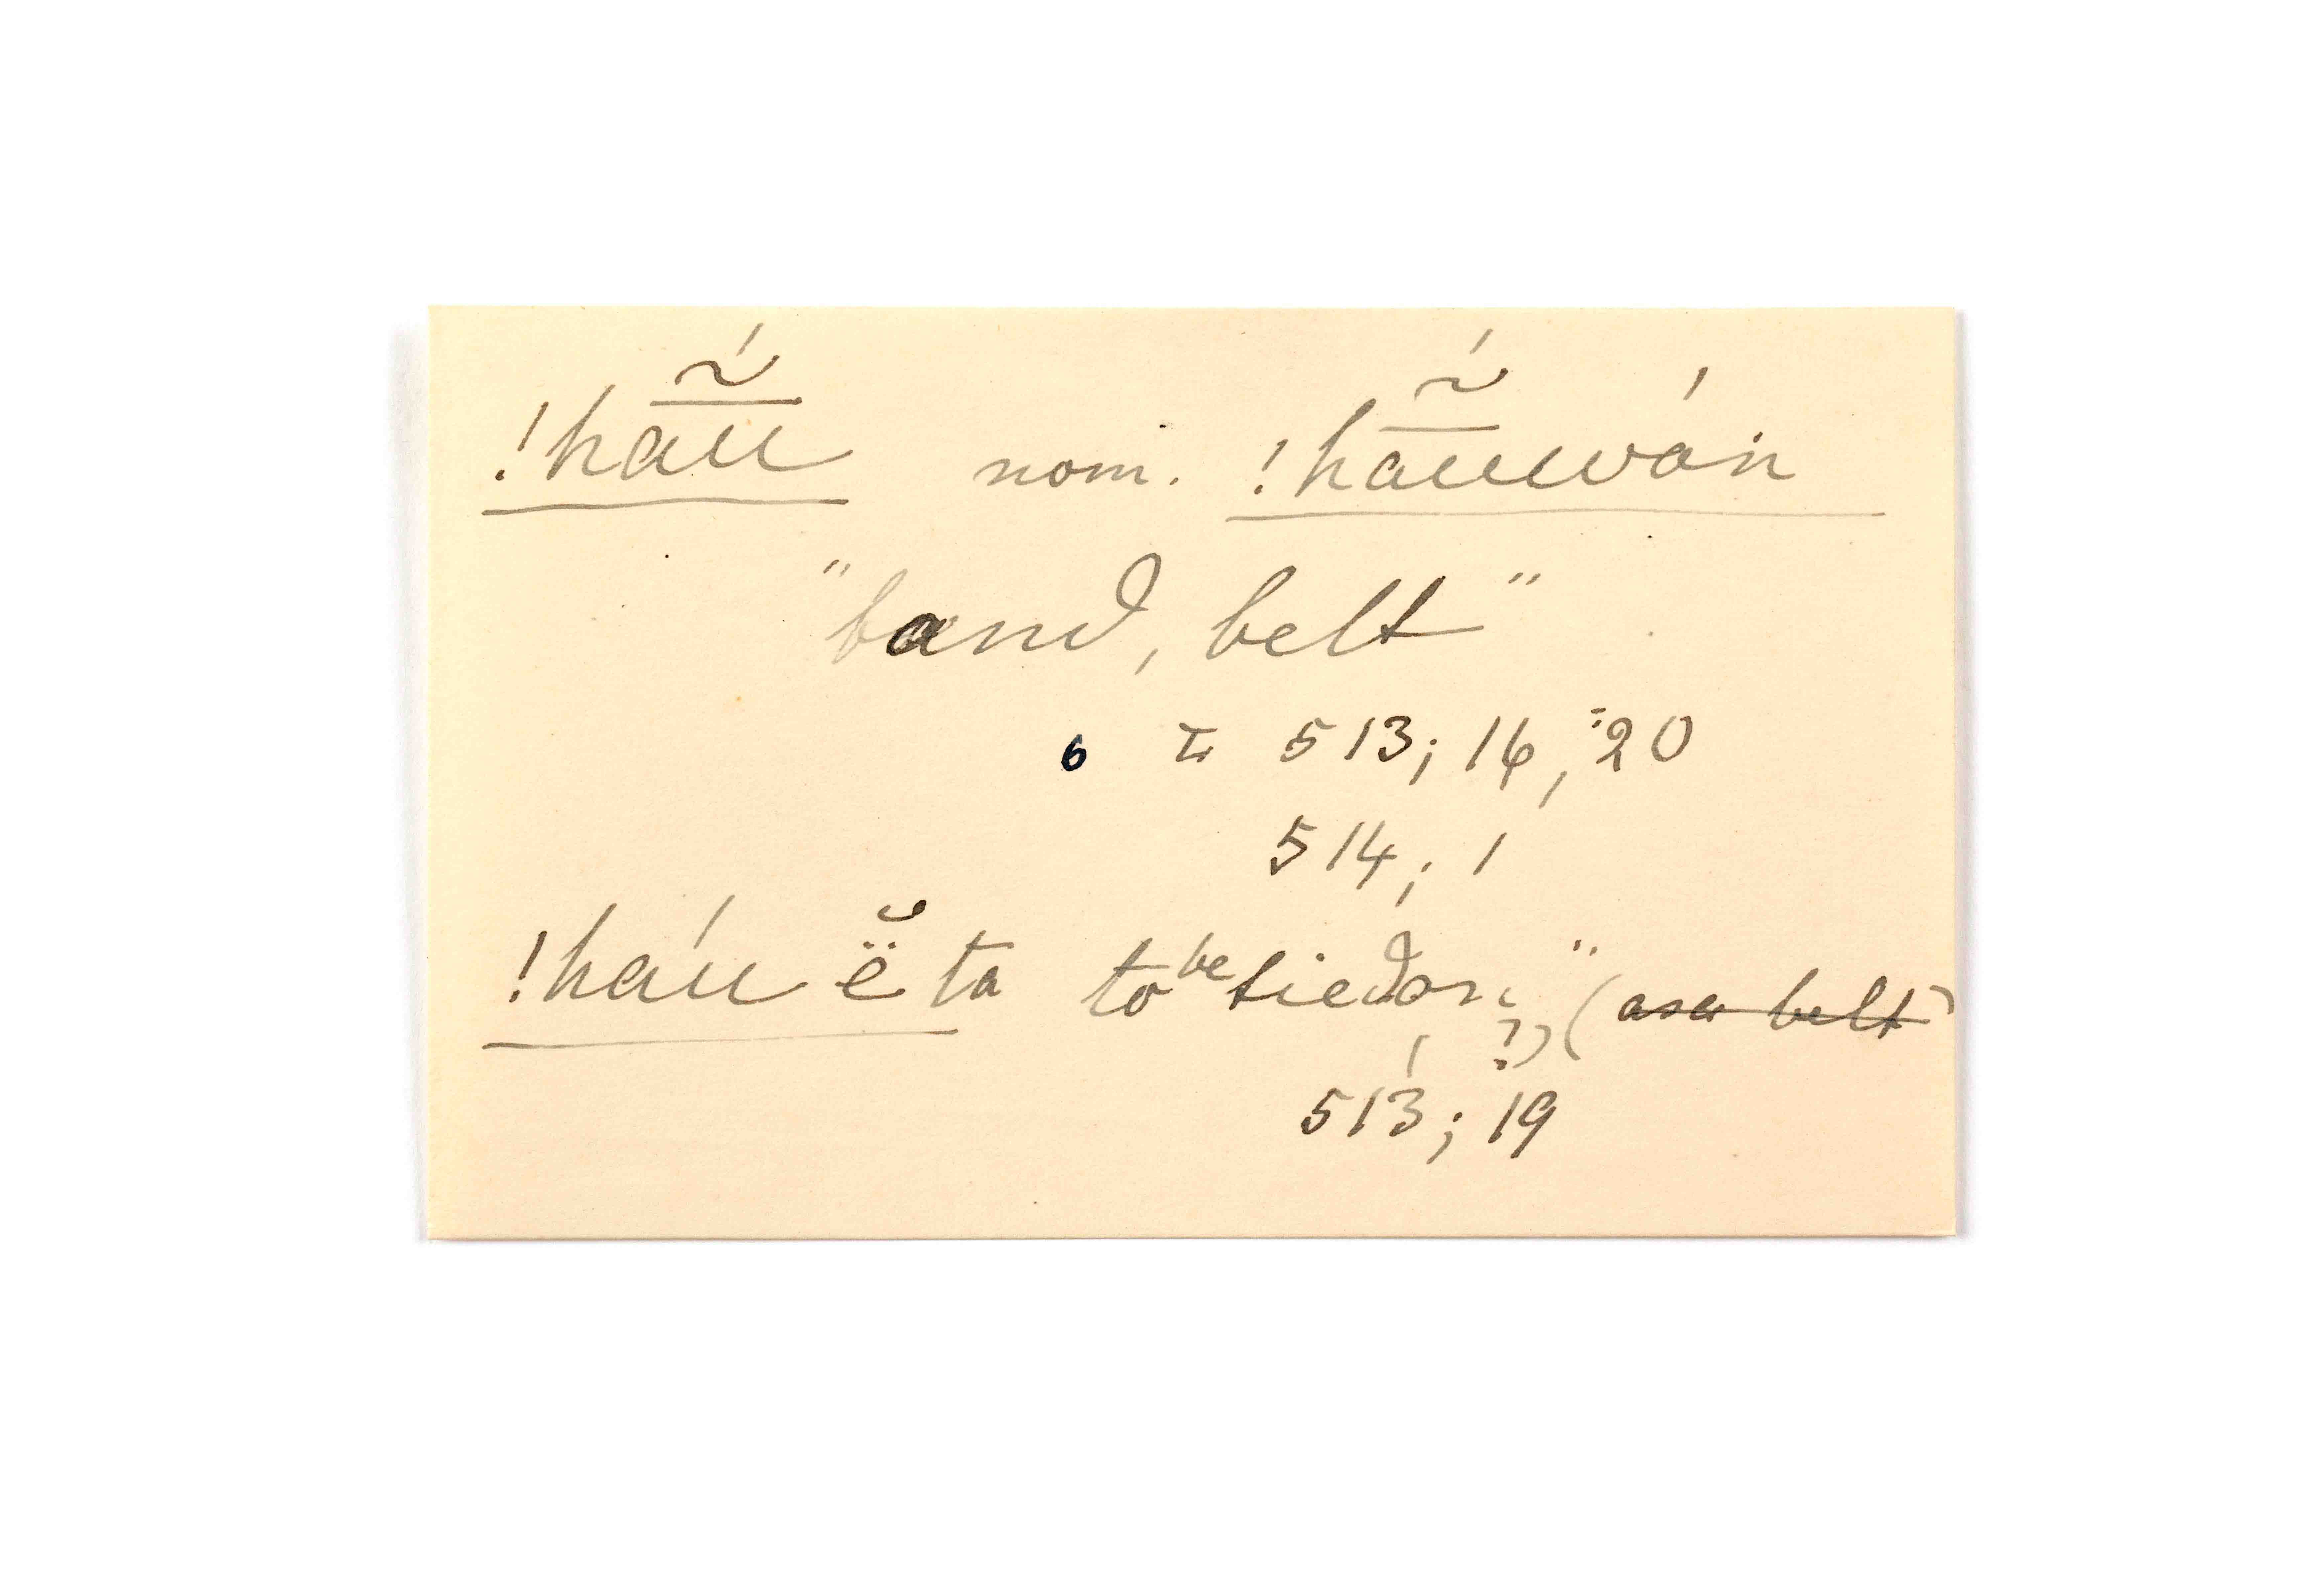 !hā̰́ṵ nom. !hā̰́ṵwán
"band, belt"
6 τ 513; 16, 20
514; 1
!háu ë̆ ta to be tied on" (as a belt
?)
513; 19